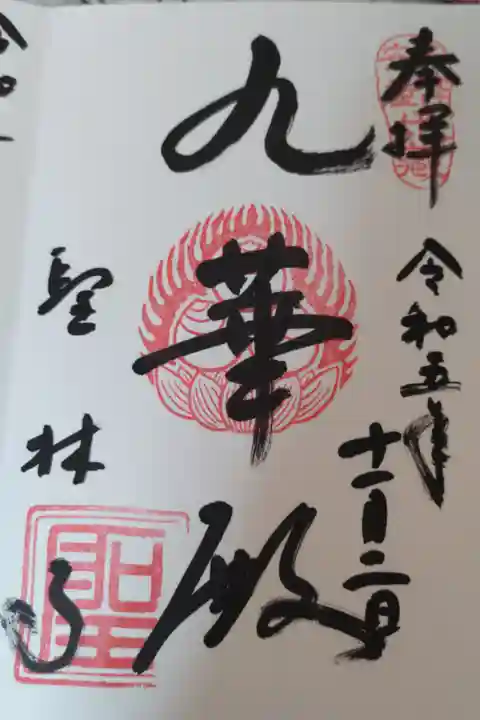 奉拝
令和五年
十一月二日
九華殿
聖林寺
聖
令和